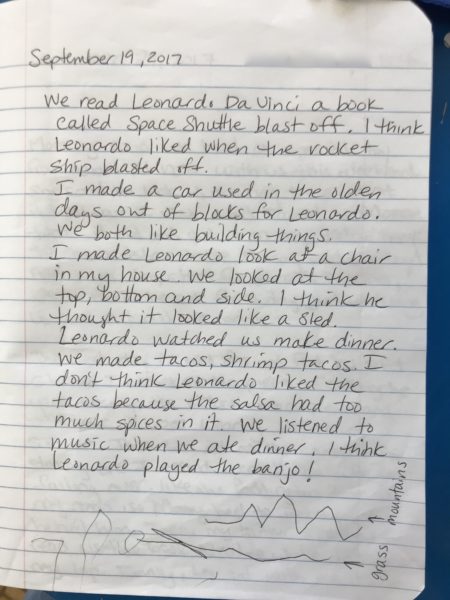 September 19, 2017
We read Leonardo Da Vinci a book
called Space Shuttle blast off. I think
Leonardo liked when the rocket
ship blasted off.
I made a car used in the olden
days out of blocks for Leonardo.
We both like building things.
I made Leonardo look at a chair
in my house. We looked at the
top, bottom and side. I think he
thought it looked like a sled.
Leonardo watched us make dinner.
We made tacos, shrimp tacos. I
don't think Leonardo liked the
tacos because the salsa had too
much spices in it. We listened to
music when we ate dinner. I think
Leonardo played the banjo!
mountains
grass